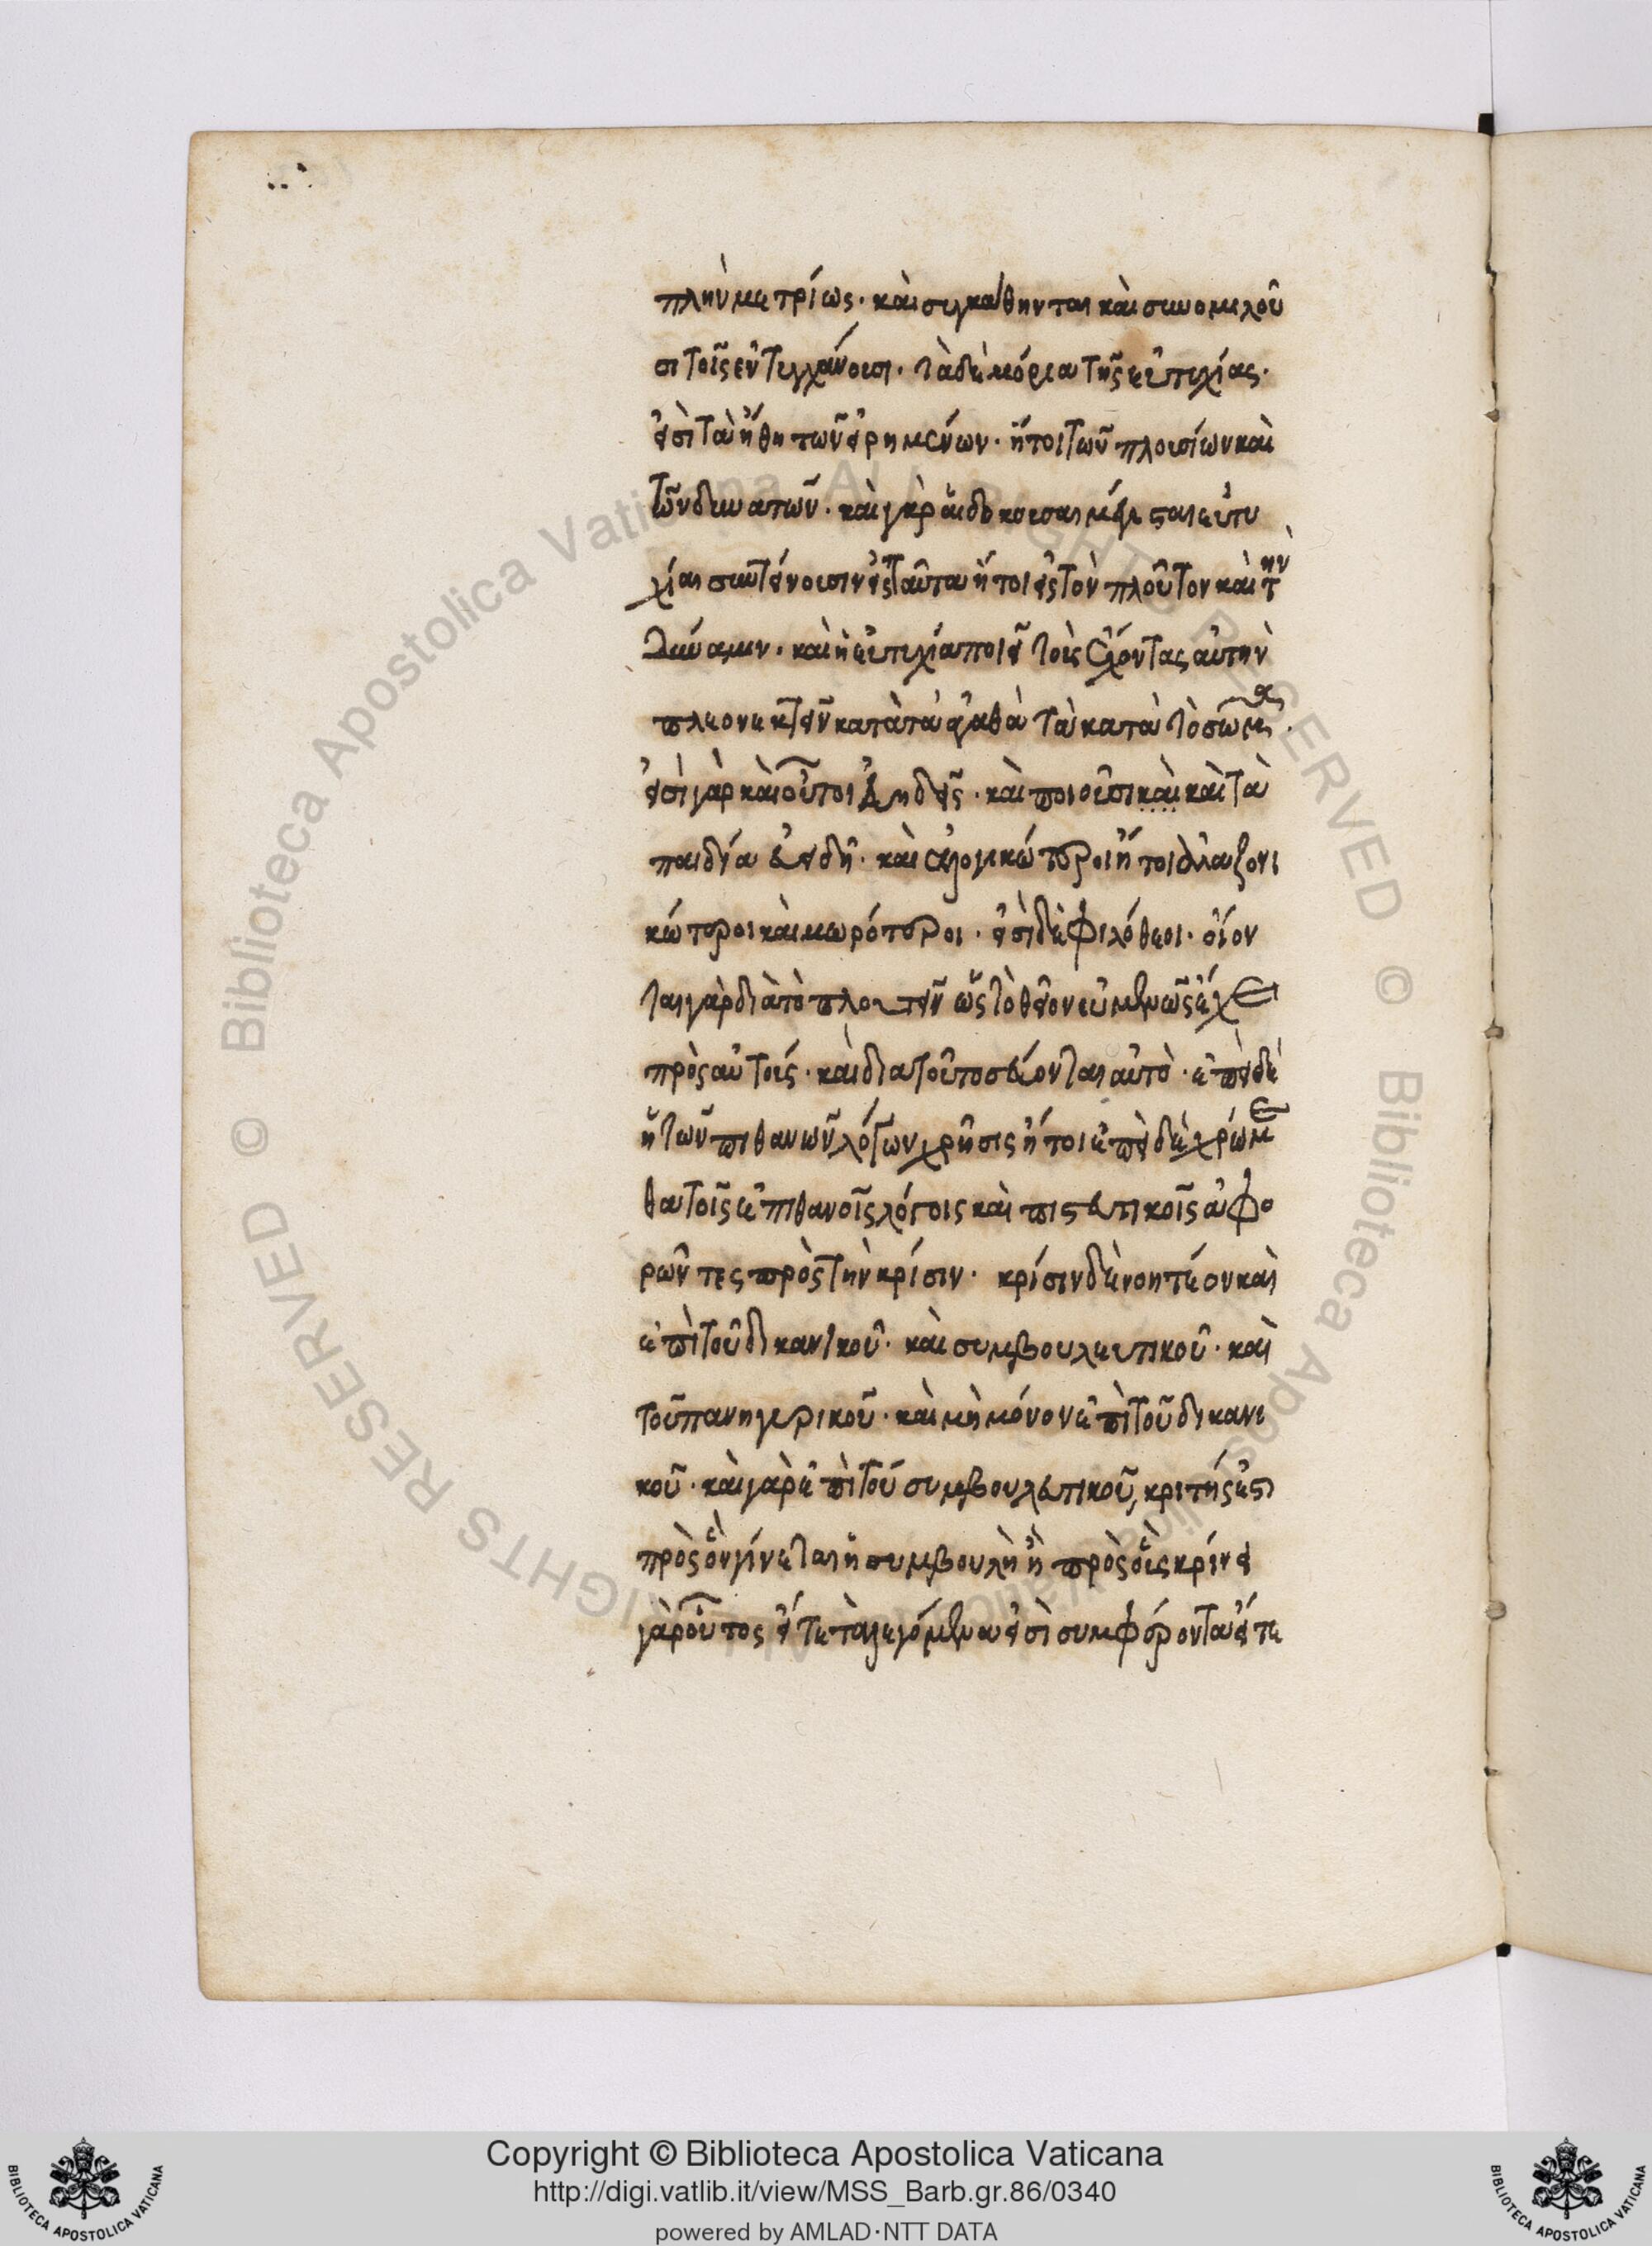 πλὴν μετρίως· καὶ συγκάθηνται καὶ συνομιλοῦ
σι τοῖς ἐντυγχάνουσι· τὰ δὲ μόρια τῆς εὐτυχίας·
εἰσὶ τὰ ἤθη τῶν εἰρημένων· ἤτοι τῶν πλουσίων καὶ
τῶν δυνατῶν· καὶ γὰρ αἱ δοκοῦσαι μέγισται εὐτυ
χίαι συντείνουσιν εἰς ταῦτα ἤτοι εἰς τὸν πλοῦτον καὶ τὴν
δύναμιν· καὶ ἡ εὐτυχία ποιεῖ τοὺς ἔχοντας αὐτὴν
πλεονεκτεῖν κατὰ τὰ ἀγαθὰ τὰ κατὰ τὸ σῶμα·
εἰσὶ γὰρ καὶ οὗτοι ἀειδεῖς· καὶ ποιοῦσι καὶ καὶ τὰ
παιδία εὐειδῆ· καὶ ἀλογικώτεροι ἤτοι ἀλαζονι
κώτεροι καὶ μωρότεροι· εἰσὶ δὲ φιλόθεοι· οἴον
ται γὰρ διὰ τὸ πλουτεῖν ὡς τὸ θεῖον εὐμενῶς ἔχει
πρὸς αὐτούς· καὶ διατοῦτο σέβονται αὐτό· ἐπεὶ δὲ
ἡ τῶν πιθανῶν λόγων χρῆσις ἤτοι ἐπεὶ δὲ χρώμε
θα τοῖς ἐπιθανοῖς λόγοις καὶ πιστευτικοῖς ἀφο
ρῶντες πρὸς τὴν κρίσιν· κρίσιν δὲ νοητέον καὶ
ἐπὶ τοῦ δικανικοῦ· καὶ συμβουλευτικοῦ· καὶ
τοῦ πανηγυρικοῦ· καὶ μὴ μόνον ἐπὶ τοῦ δικανι
κοῦ· καὶ γὰρ ἐπὶ τοῦ συμβουλευτικοῦ, κριτής ἐστι
πρὸς ὃν γίνεται ἡ συμβουλὴ ἢ πρὸς οὓς κρίνει
γὰρ οὗτος εἴτε τὰ λεγόμενα εἰσὶ συμφέροντα εἴτε
Copyright © Biblioteca Apostolica Vaticana
http://digi.vatlib.it/view/MSS_Barb.gr.86/0340
powered by AMLAD·NTT DATA
BIBLIOTECA APOSTOLICA VATICANA
BIBLIOTECA APOSTOLICA VATICANA
© Biblioteca Apostolica Vaticana ALL RIGHTS RESERVED
© Biblioteca Apostolica Vaticana ALL RIGHTS RESERVED